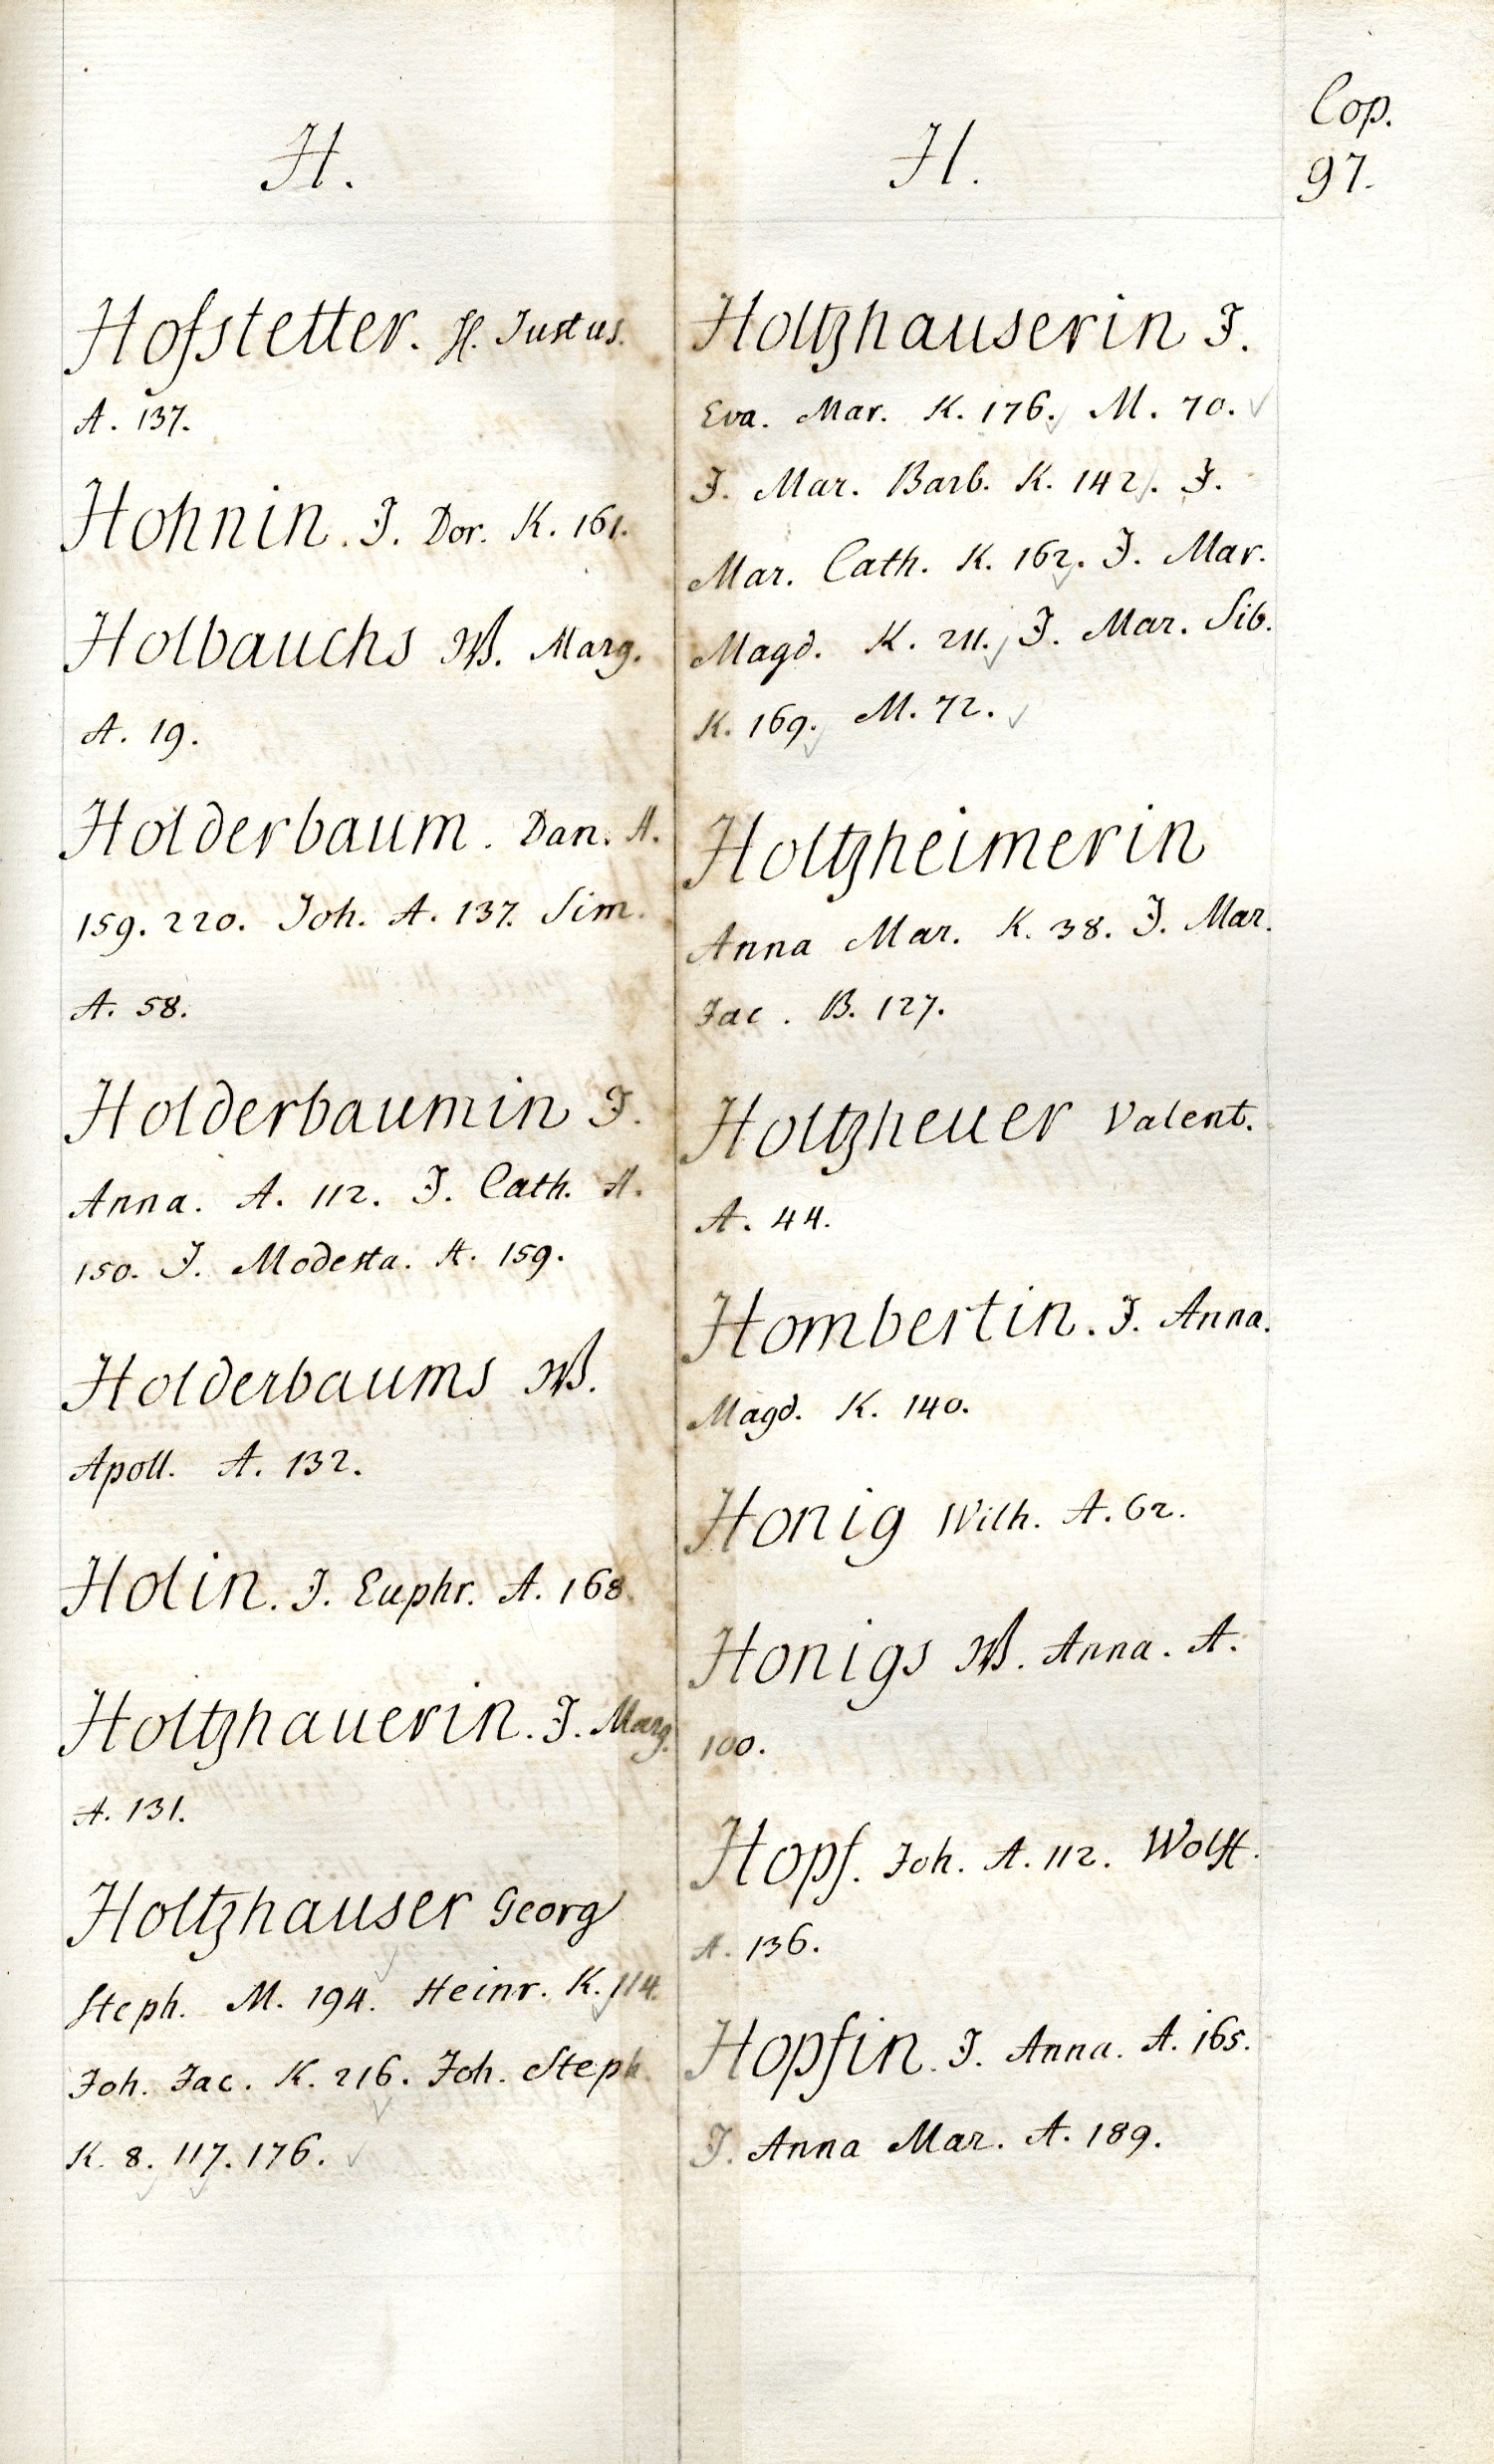 Cop.
97.
H.
Hofstetter. H. Justus.
A. 137.
Hohnin. J. Dor. K. 161.
Holbauchs W. Marg.
A. 19.
Holderbaum. Dan. A.
159. 220. Joh. A. 137. Sim.
A. 58.
Holderbaumin J.
Anna. A. 112. J. Cath. A.
150. J. Modesta. A. 159.
Holderbaums W.
Apoll. A. 132.
Holin. J. Euphr. A. 168.
Holtzhauerin. J. Marg.
A. 131.
Holtzhauser Georg
Steph. M. 194. Heinr. K. 114.
Joh. Jac. K. 216. Joh. Steph.
K. 8. 117. 176.
H.
Holtzhauserin J.
Eva. Mar. K. 176. M. 70.
J. Mar. Barb. K. 142. J.
Mar. Cath. K. 162. J. Mar.
Magd. K. 211. J. Mar. Sib.
K. 169. M. 72.
Holtzheimerin
Anna Mar. K. 38. J. Mar.
Jac. B. 127.
Holtzheuer Valent.
A. 44.
Hombertin. J. Anna.
Magd. K. 140.
Honig Wilh. A. 62.
Honigs W. Anna. A.
100.
Hopf. Joh. A. 112. Wolff.
A. 136.
Hopfin. J. Anna. A. 165.
J. Anna Mar. A. 189.